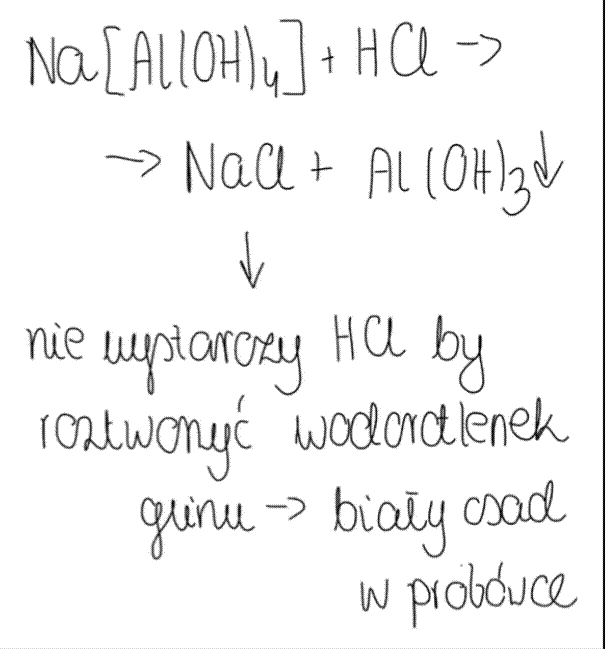 Na[Al(OH)₄] + HCl →
→ NaCl + Al(OH)₃↓
↓
nie wystarczy HCl by
roztworzyć wodorotlenek
glinu → biały osad
w probówce